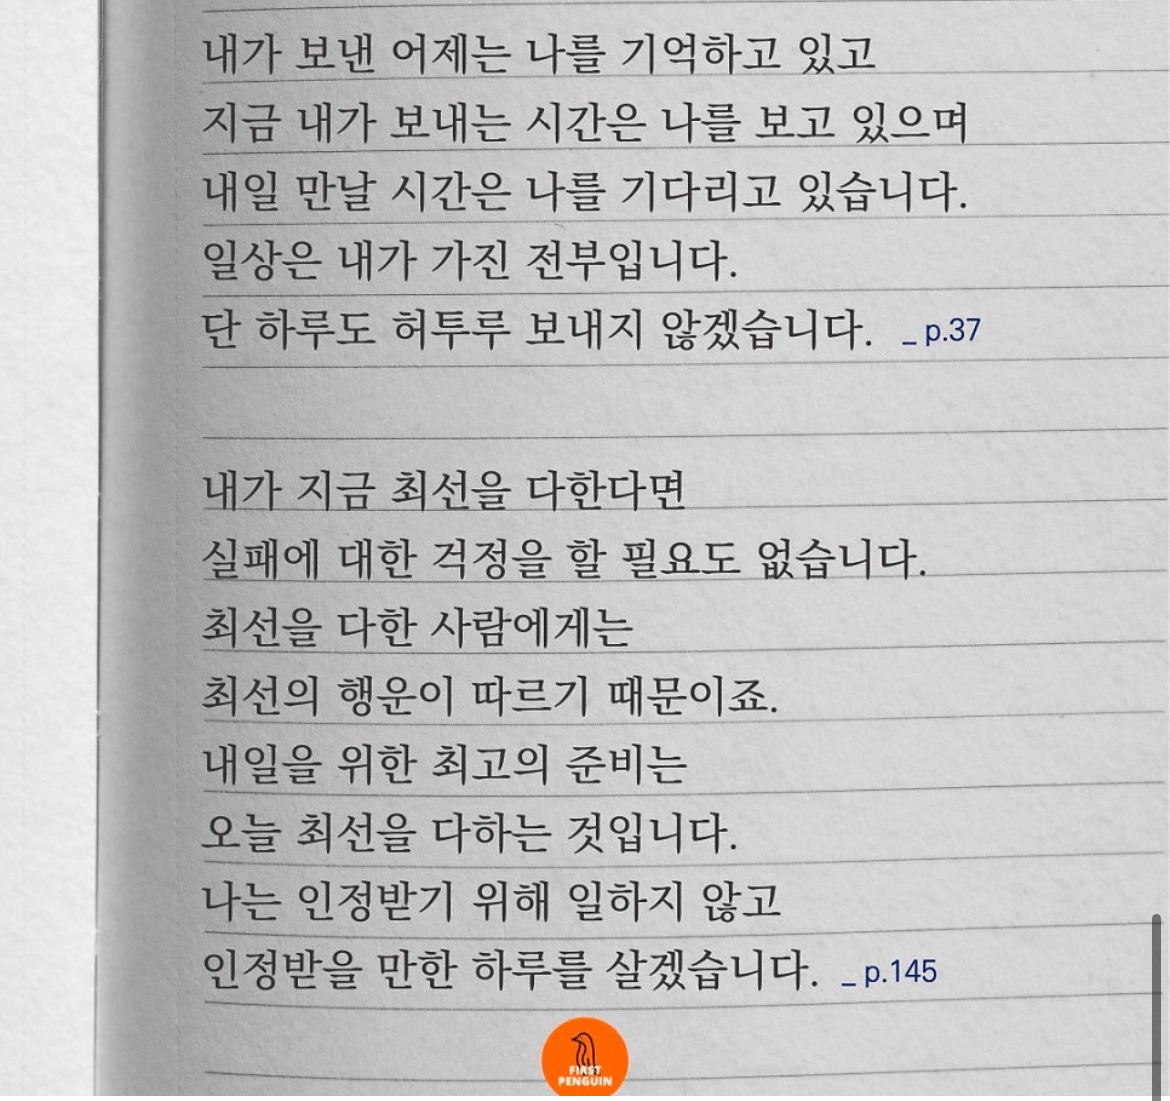 내가 보낸 어제는 나를 기억하고 있고
지금 내가 보내는 시간은 나를 보고 있으며
내일 만날 시간은 나를 기다리고 있습니다.
일상은 내가 가진 전부입니다.
단 하루도 허투루 보내지 않겠습니다. _ p.37
내가 지금 최선을 다한다면
실패에 대한 걱정을 할 필요도 없습니다.
최선을 다한 사람에게는
최선의 행운이 따르기 때문이죠.
내일을 위한 최고의 준비는
오늘 최선을 다하는 것입니다.
나는 인정받기 위해 일하지 않고
인정받을 만한 하루를 살겠습니다. _ p.145
FIRST
PENGUIN